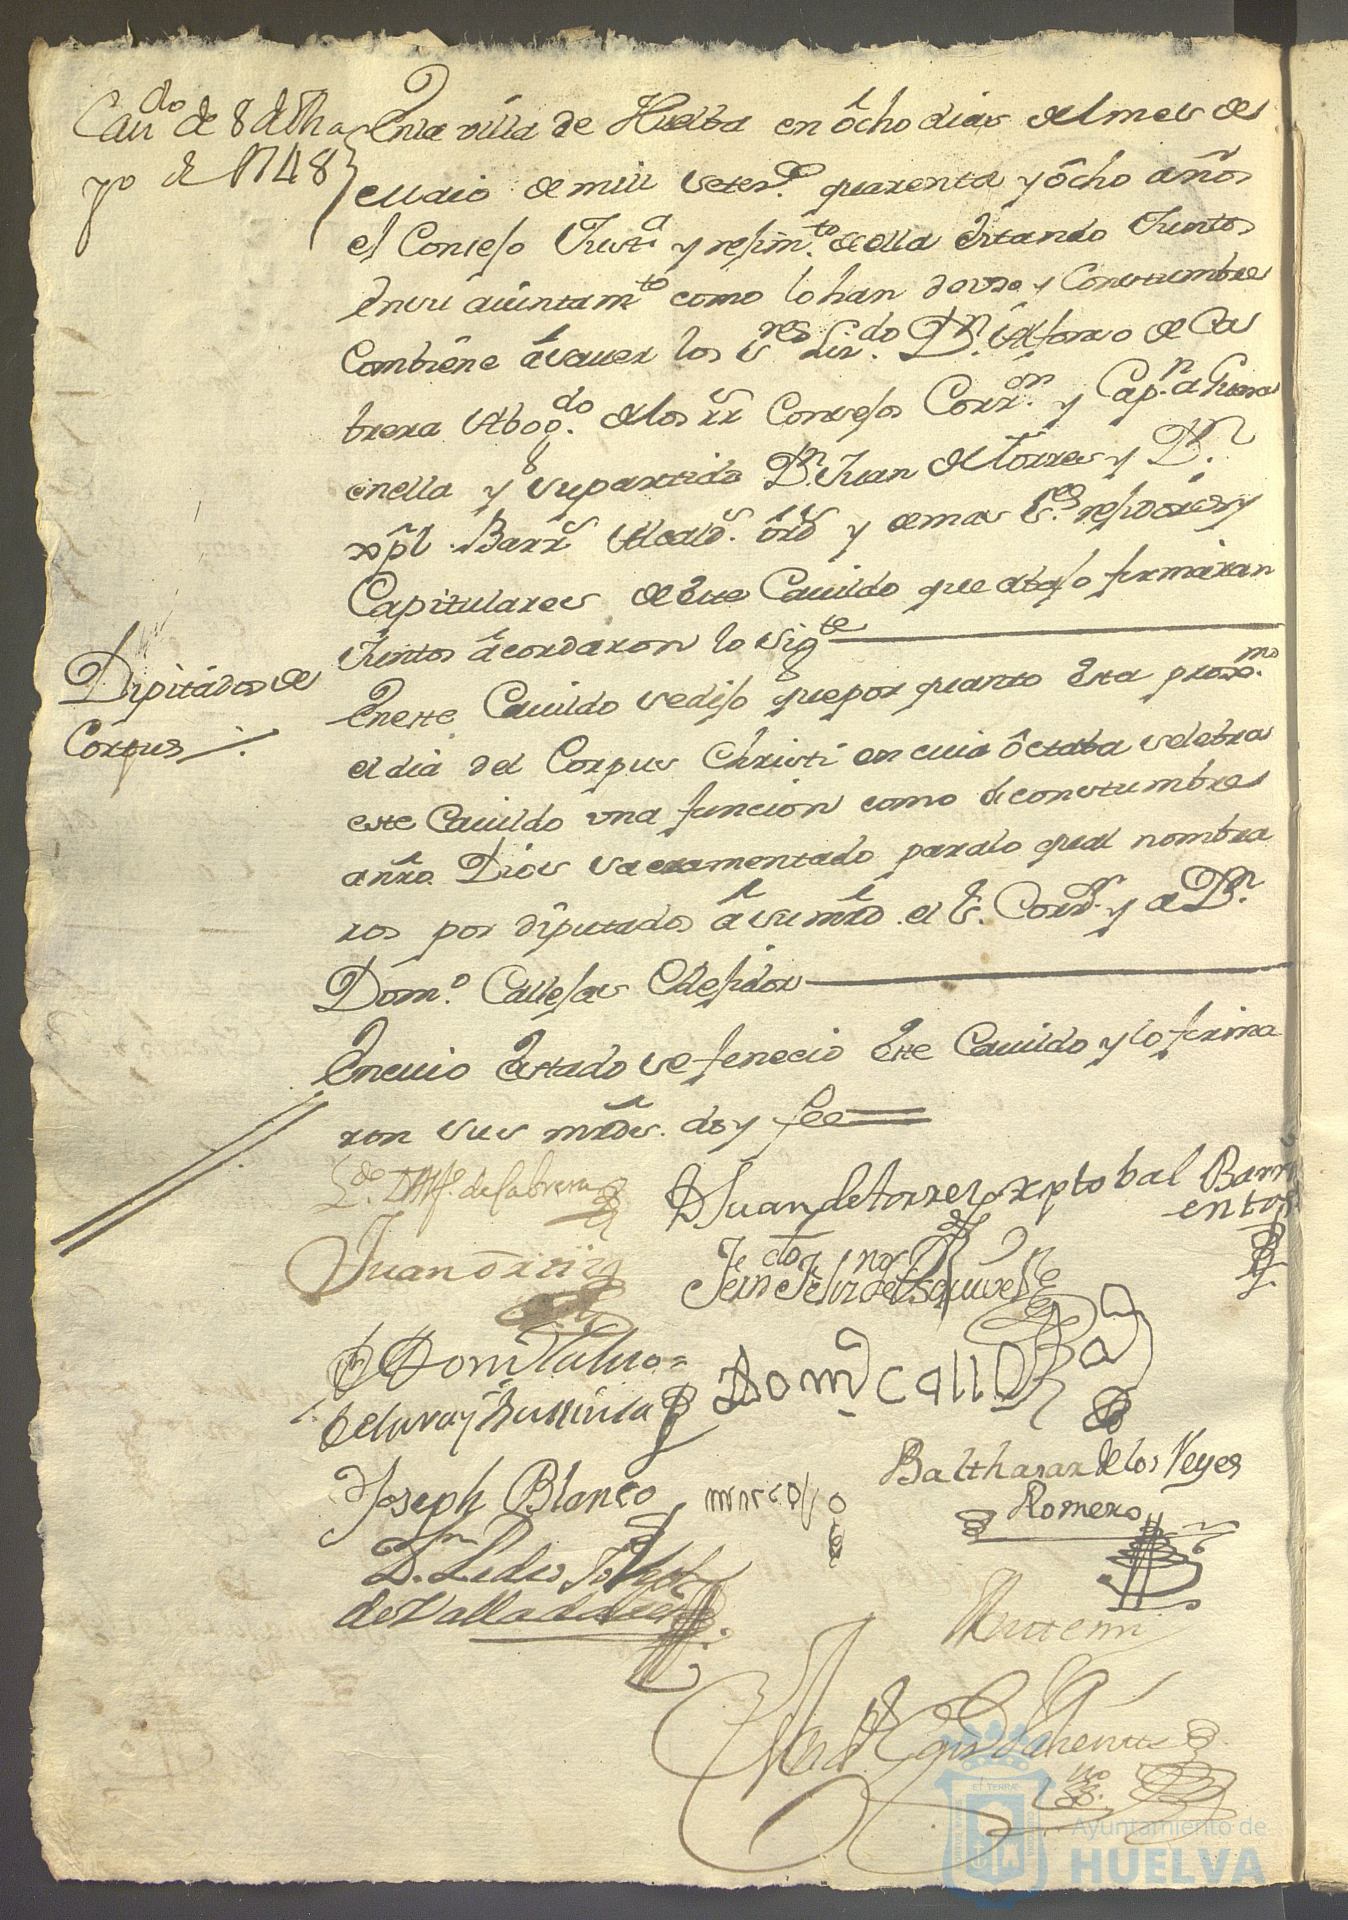 Cau.do de 8 de Ma
yo de 1748
En la villa de Huelba en ôcho dias del mes de
Maio de mill setes.s quarenta y ôcho años
el Consejo Just.a y rejim.to de ella estando Juntos
en su aiuntam.to como lo han de uso y Constumbre
combiene â sauer los S.res Liz.do D.n Alfonso de Ca
brera Abog.do de los RR Consejos Corr.or y Cap.n a Guerra
en ella y su partido D.n Juan de Torres y D.n
xpl Barr.s Alcald.s ord.s y demas S.res rejidores y
Capitulares de este Cauildo que abajo firmaran
Juntos âcordaron lo sig.te
Diputados de
Corpus
En este Cauildo se dijo que por quanto esta proxo.mo
el dia del Corpus Christi en cuia ôctaba selebra
este Cauildo una funcion como de constumbre
a nro Dios sacramentado para lo qual nombra
ron por diputados â su mrd el S. Corr.r y a D.n
Dom.o Callejas Rejidor
En cuio estado se fenecio este Cauildo y lo firma
ron sus mrdes. doy fee
L.do D. Alf. de Cabrera
D Juan de torres xptobal Barri
entos
Juan ortiz
D Dom
Dom.o calleja
Joseph Blanco
marcos
Balthasar de los Reyes
Romero
D.n Pedro
de Valladares
Ante mi
Ayuntamiento de
HUELVA